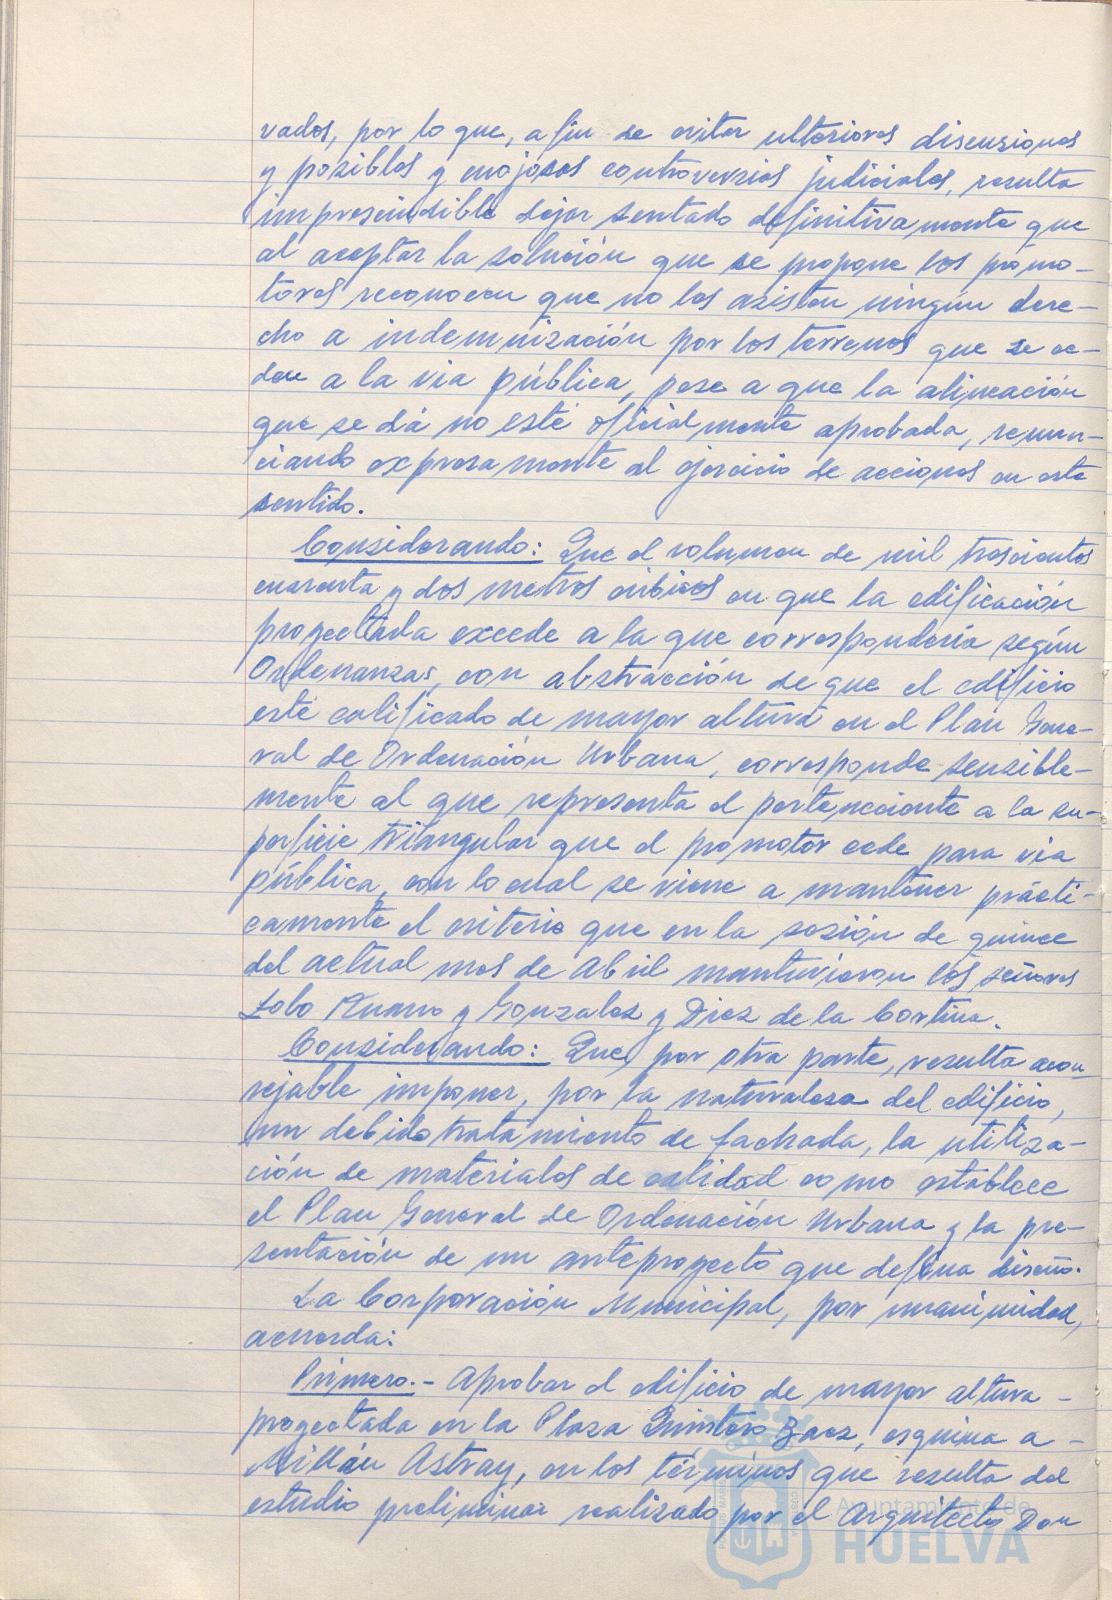 vados, por lo que, a fin de evitar ulteriores discusiones
y posibles y enojosas controversias judiciales, resulta
imprescindible dejar sentado definitivamente que
al aceptar la solución que se propone los promo-
tores reconocen que no les asisten ningún dere-
cho a indemnización por los terrenos que se ce-
den a la via pública, pese a que la alineación
que se dá no esté oficialmente aprobada, renun-
ciando expresamente al ejercicio de acciones en este
sentido.
Considerando: Que el volumen de mil trescientos
cuarenta y dos metros cúbicos en que la edificación
proyectada excede a la que correspondería según
Ordenanzas, con abstracción de que el edificio
esté calificado de mayor altura en el Plan Gene-
ral de Ordenación Urbana, corresponde sensible-
mente al que representa el perteneciente a la su-
perficie triangular que el promotor cede para via
pública, con lo cual se viene a mantener prácti-
camente el criterio que en la sesión de quince
del actual mes de Abril mantuvieron los señores
Lobo y Gonzalez y Diez de la Cortina.
Considerando: Que, por otra parte, resulta acon-
sejable imponer, por la naturaleza del edificio,
un debido tratamiento de fachada, la utiliza-
ción de materiales de calidad como establece
el Plan General de Ordenación Urbana y la pre-
sentación de un anteproyecto que defina diseño.
La Corporación Municipal, por unanimidad,
acuerda:
Primero.- Aprobar el edificio de mayor altura -
proyectada en la Plaza Quintero Baez, esquina a -
Millán Astray, en los términos que resulta del
estudio preliminar realizado por el Arquitecto Don
Ayuntamiento de
HUELVA